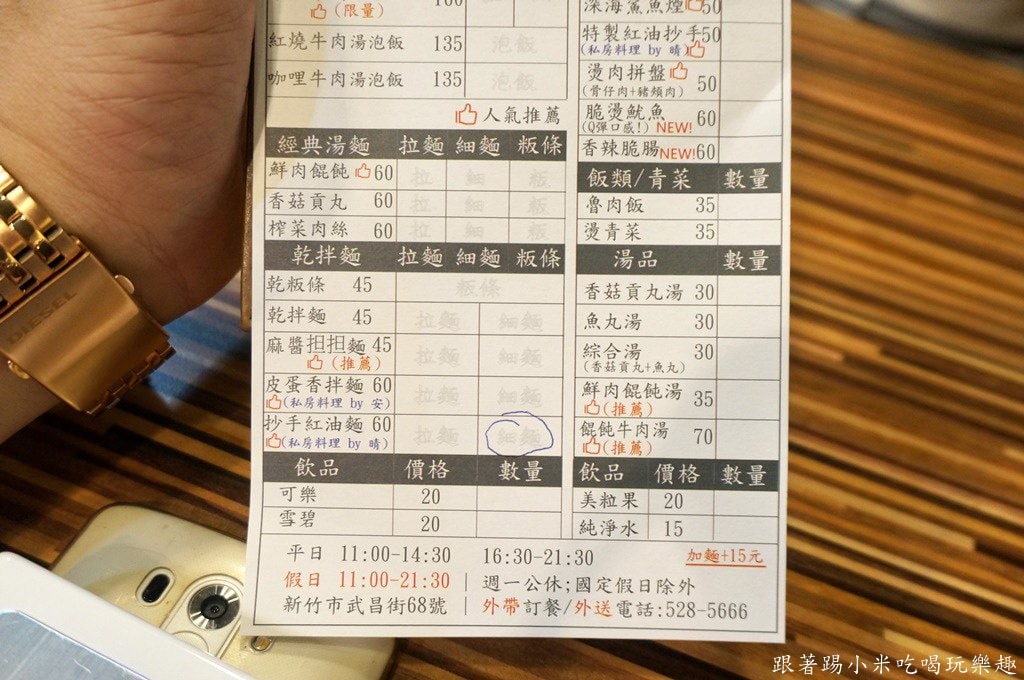 (限量)
紅燒牛肉湯泡飯 135 泡飯
咖哩牛肉湯泡飯 135 泡飯
人氣推薦
經典湯麵 拉麵 細麵 粄條
鮮肉餛飩 60 拉 細 粄
香菇貢丸 60 拉 細 粄
榨菜肉絲 60 拉 細 粄
乾拌麵 拉麵 細麵 粄條
乾粄條 45 粄條
乾拌麵 45 拉麵 細麵
麻醬担担麵 45 拉麵 細麵
(推薦)
皮蛋香拌麵 60 拉麵 細麵
(私房料理 by 安)
抄手紅油麵 60 拉麵 細麵
(私房料理 by 晴)
飲品 價格 數量
可樂 20
雪碧 20
50
特製紅油抄手 50
(私房料理 by 晴)
燙肉拼盤 50
(骨仔肉+豬頰肉)
脆燙魷魚 60
(Q彈口感!) NEW!
香辣脆腸 NEW! 60
飯類/青菜 數量
魯肉飯 35
燙青菜 35
湯品 數量
香菇貢丸湯 30
魚丸湯 30
綜合湯 30
(香菇貢丸+魚丸)
鮮肉餛飩湯 35
(推薦)
餛飩牛肉湯 70
(推薦)
飲品 價格 數量
美粒果 20
純淨水 15
平日 11:00-14:30 16:30-21:30 加麵+15元
假日 11:00-21:30 | 週一公休;國定假日除外
新竹市武昌街68號 | 外帶訂餐/外送電話:528-5666
DIESEL
跟著踢小米吃喝玩樂趣